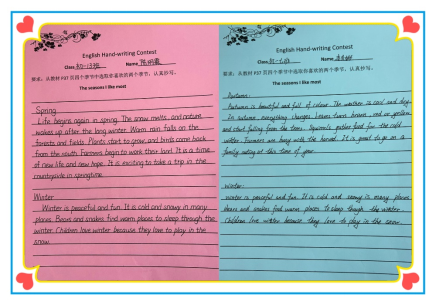 English Hand-writing Contest
Class 初一13班 Name
要求：从教材 P37 页四个季节中选取你喜欢的两个季节，认真抄写。
The seasons I like most
Spring
Life begins again in spring. The snow melts, and nature
wakes up after the long winter. Warm rain falls on the
forests and fields. Plants start to grow, and birds come back
from the south. Farmers begin to work their land. It is a time
of new life and new hope. It is exciting to take a trip in the
countryside in springtime.
Winter
Winter is peaceful and fun. It is cold and snowy in many
places. Bears and snakes find warm places to sleep through the
winter. Children love winter because they love to play in the
snow.
English Hand-writing Contest
Class Name
要求：从教材 P37 页四个季节中选取你喜欢的两个季节，认真抄写。
The seasons I like most
Autumn:
Autumn is beautiful and full of colour. The weather is cool and dry.
In autumn, everything changes. Leaves turn brown, red or yellow
and start falling from the trees. Squirrels gather food for the cold
winter. Farmers are busy with the harvest. It is great to go on a
family outing at this time of year.
Winter:
Winter is peaceful and fun. It is cold and snowy in many places.
Bears and snakes find warm places to sleep through the winter.
Children love winter because they love to play in the snow.